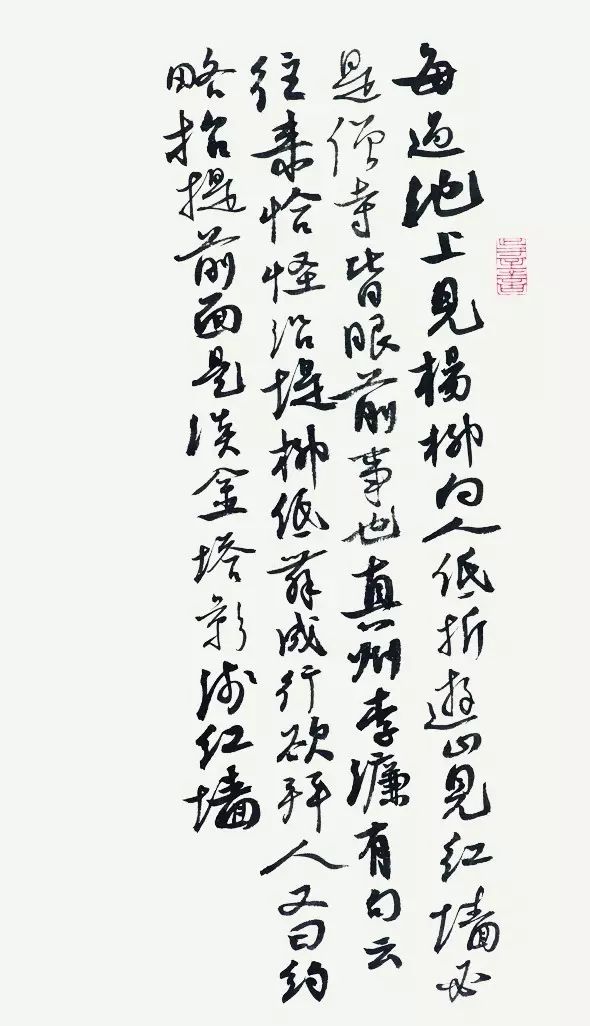 每過池上見楊柳向人低折遊山見紅墻必
是僧寺皆眼前事也真州李濂有句云
往來恰怪沿堤柳低舞成行欲拜人又曰約
略招提前面是淡金塔影淺紅墻